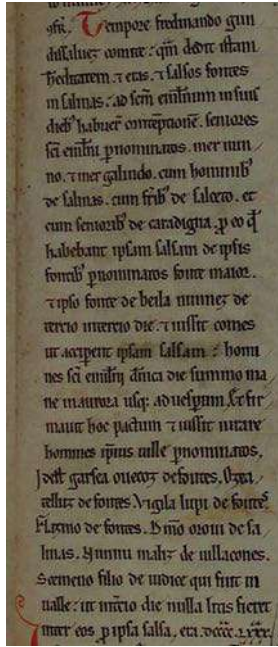 Tempore fredinando gun
dissaluez comite: qñ dedit istam
hereditatem. ⁊ eras. ⁊ salsos fontes
in salinas. ad scm emilianum in suis
dieb' habuer contemptione. seniores
sci emiliani p nominatos. mer nun
no. ⁊ mer galindo. cum hominib'
de salinas. cum frib' de salcedo. et
cum seniorib' de caradigna. p eo qđ
habebant ipsam salsam de ipsis
fontib' p nominatos fonte maior.
⁊ ipso fonte de beila nunnez de
tercio in tercio die. ⁊ iussit comes
ut acciperent ipsam salsam: homi
nes sci emilij dñica die summo ma
ne in aurora usq: ad uesperum. Et fir
mauit hoc pactum ⁊ iussit iurare
homines ipsius uille p nominatos.
Idest garsea ouecoz de fontes.
telluz de fontes. Vigila lupi de fontes
de fontes. oroui de sa
linas. Nunnu de uillacones.
Scemeno filio de iudice qui fuit in
ualle: ut in tercio die nulla licas fieret
inter eos p ipsa salsa. era.